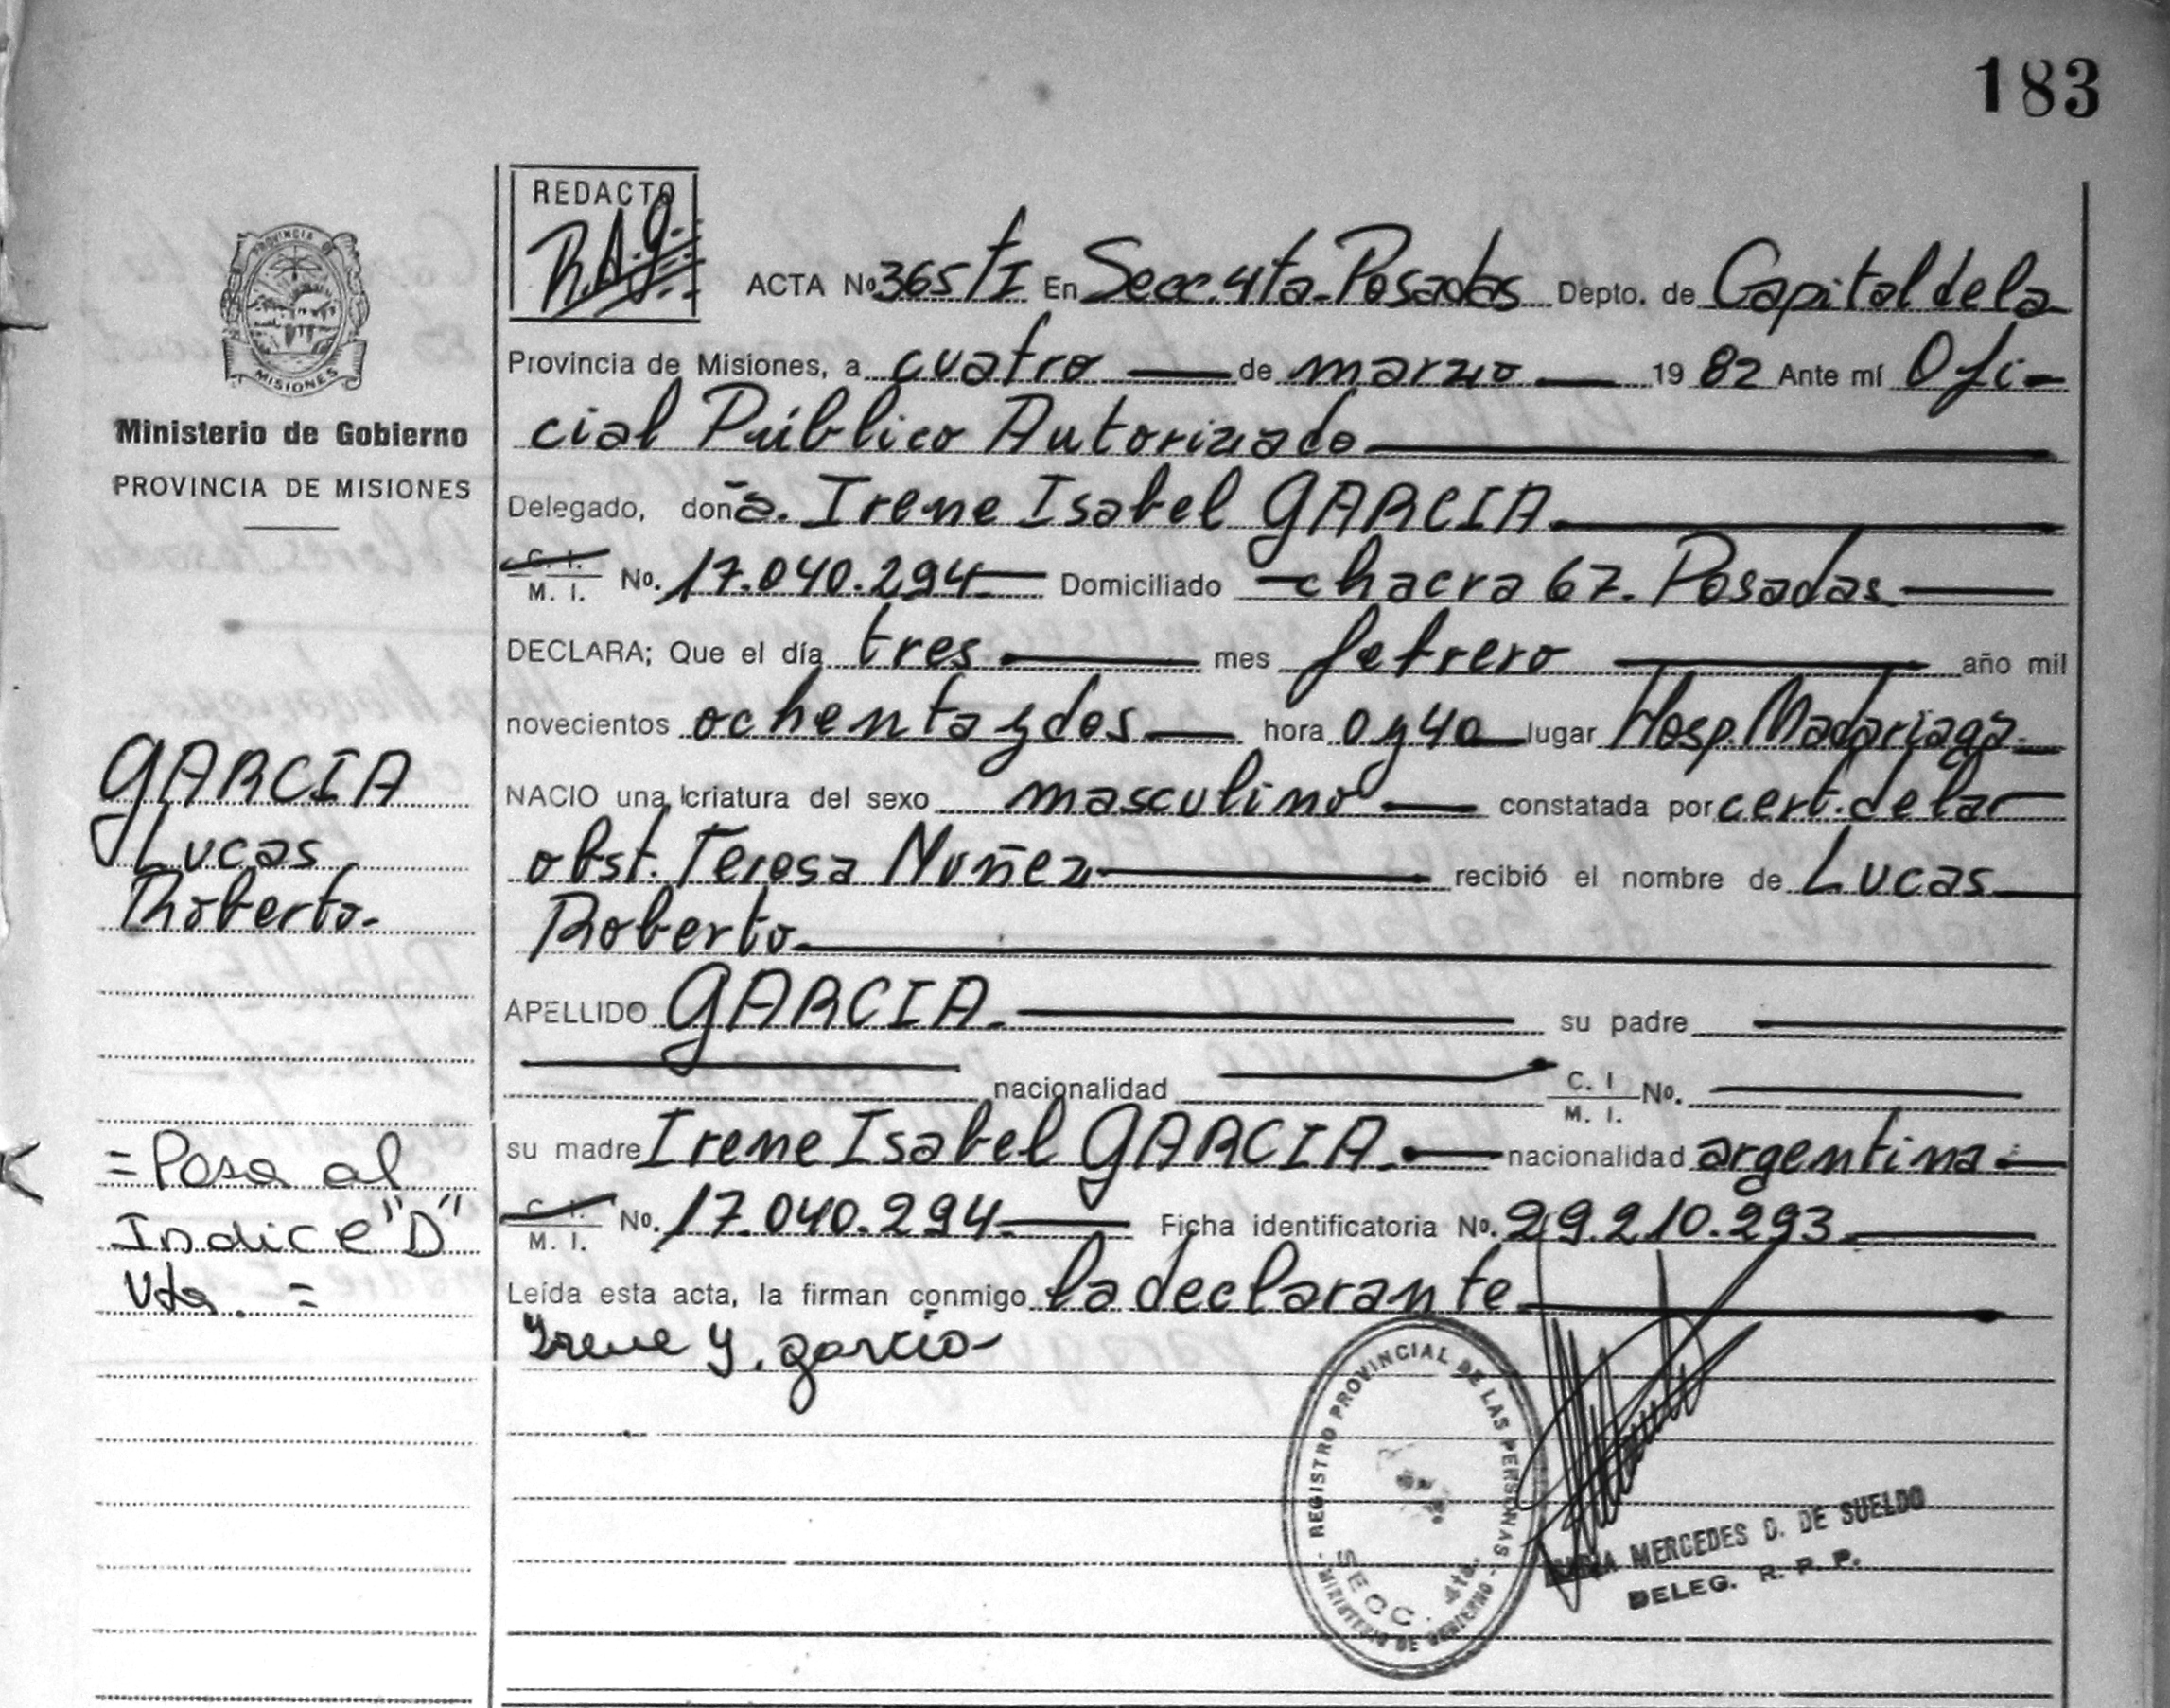 183
REDACTO
R.A.G.
PROVINCIA DE
MISIONES
Ministerio de Gobierno
PROVINCIA DE MISIONES
ACTA Nº 365/TI En Secc. 4ta. Posadas Depto. de Capital de la
Provincia de Misiones, a cuatro de marzo 1982 Ante mí Ofi-
cial Público Autorizado
Delegado, doña. Irene Isabel GARCIA
C. I.
M. I. Nº. 17.040.294 Domiciliado chacra 67. Posadas
DECLARA; Que el día tres mes febrero año mil
novecientos ochenta y dos hora 0 y 40 lugar Hosp. Madariaga
NACIO una criatura del sexo masculino constatada por cert. de la
obst. Teresa Nuñez recibió el nombre de Lucas
Roberto
APELLIDO GARCIA su padre
nacionalidad C. I
M. I. Nº.
su madre Irene Isabel GARCIA. nacionalidad argentina
C. I.
M. I. Nº. 17.040.294 Ficha identificatoria Nº. 29.210.293
Leída esta acta, la firman conmigo la declarante
Irene Y. garcia
GARCIA
Lucas
Roberto.
=Pasa al
Indice "D"
Vta. =
REGISTRO PROVINCIAL DE LAS PERSONAS
MINISTERIO DE GOBIERNO
SECC. 4ta.
MERCEDES G. DE SUELDO
DELEG. R. P. P.